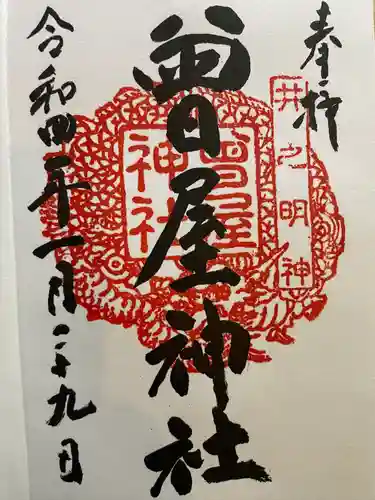 奉拝
井之明神
曽屋神社
曽屋神社
令和四年一月二十九日